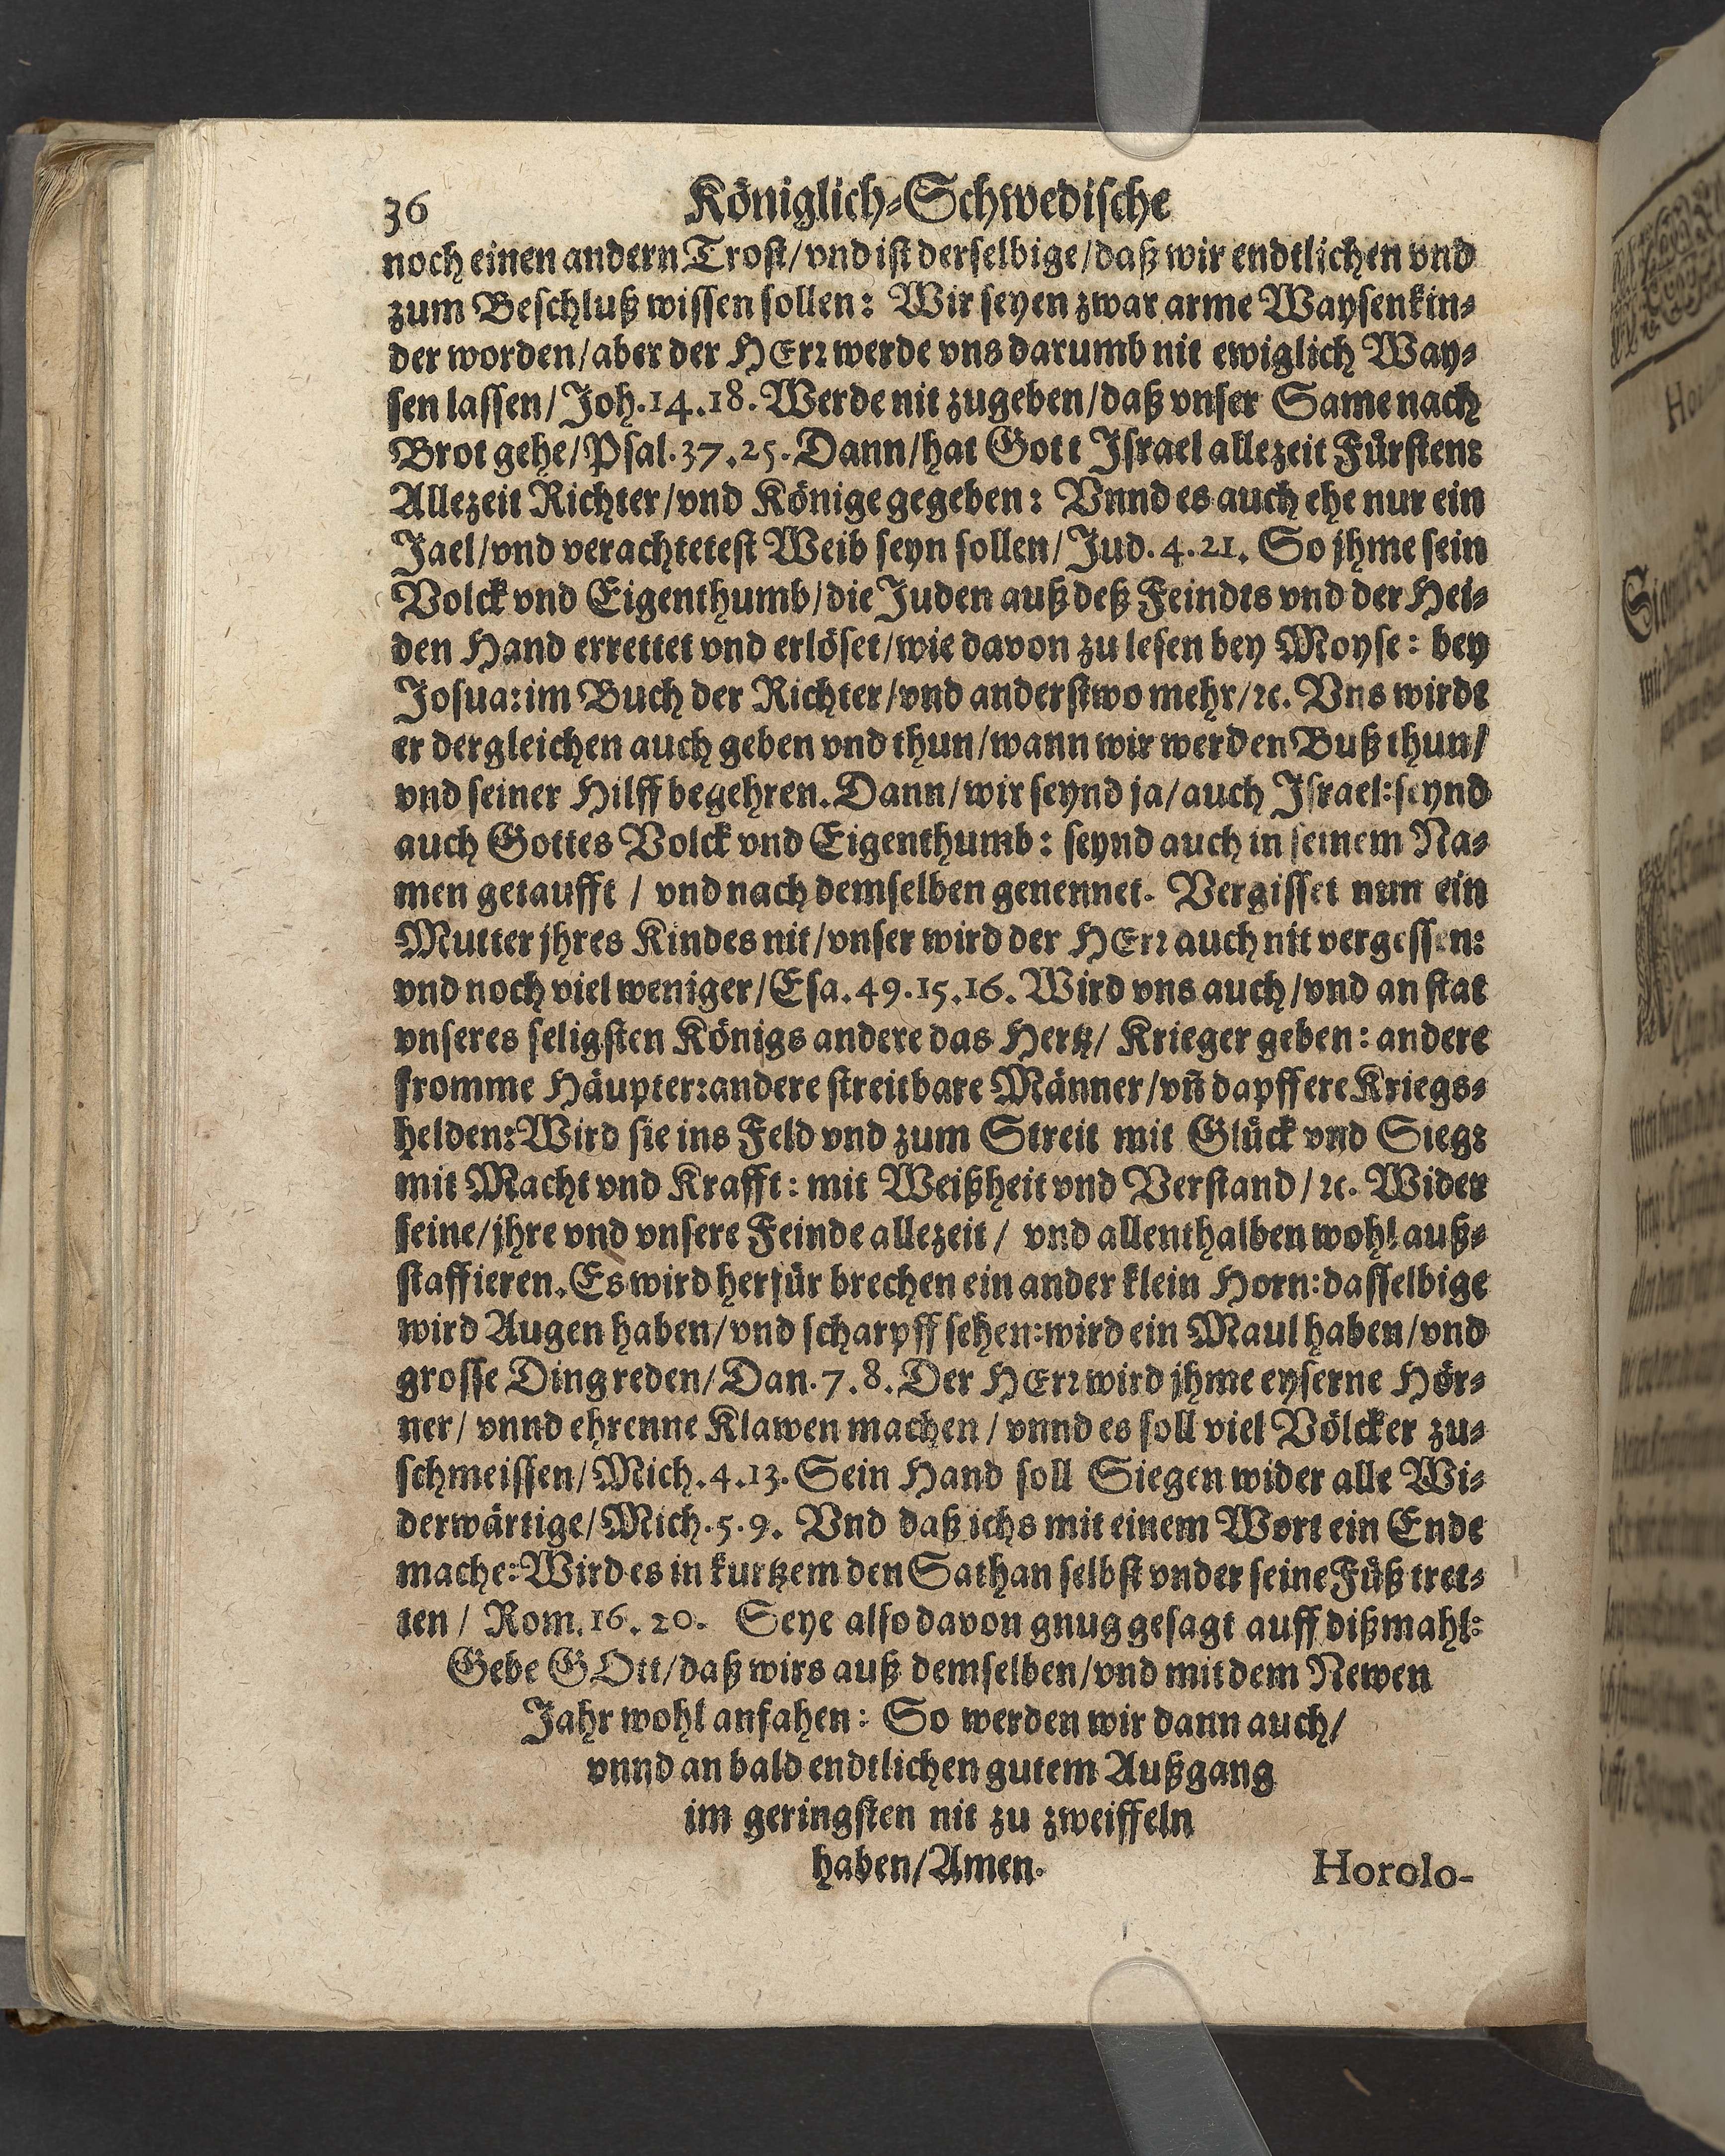 36 Königlich-Schwedische
noch einen andern Trost/ vnd ist derselbige/ daß wir endtlichen vnd
zum Beschluß wissen sollen: Wir seyen zwar arme Waysenkin-
der worden/ aber der HErr werde vns darumb nit ewiglich Way-
sen lassen/ Joh. 14. 18. Werde nit zugeben/ daß vnser Same nach
Brot gehe/ Psal. 37. 25. Dann/ hat Gott Israel allezeit Fürsten:
Allezeit Richter/ vnd Könige gegeben: Vnnd es auch ehe nur ein
Jael/ vnd verachtetest Weib seyn sollen/ Jud. 4. 21. So jhme sein
Volck vnd Eigenthumb/ die Juden auß deß Feindts vnd der Hei-
den Hand errettet vnd erlöset/ wie davon zu lesen bey Moyse: bey
Josua: im Buch der Richter/ vnd anderstwo mehr/ ꝛc. Vns wirdt
er dergleichen auch geben vnd thun/ wann wir werden Buß thun/
vnd seiner Hilff begehren. Dann/ wir seynd ja/ auch Israel: seynd
auch Gottes Volck vnd Eigenthumb: seynd auch in seinem Na-
men getaufft / vnd nach demselben genennet. Vergisset nun ein
Mutter jhres Kindes nit/ vnser wird der HErr auch nit vergessen:
vnd noch viel weniger/ Esa. 49. 15. 16. Wird vns auch/ vnd an stat
vnseres seligsten Königs andere das Hertz/ Krieger geben: andere
fromme Häupter: andere streitbare Männer/ vn̄ dapffere Kriegs-
helden: Wird sie ins Feld vnd zum Streit mit Glück vnd Sieg:
mit Macht vnd Krafft: mit Weißheit vnd Verstand / ꝛc. Wider
seine/ jhre vnd vnsere Feinde allezeit / vnd allenthalben wohl auß-
staffieren. Es wird herfür brechen ein ander klein Horn: dasselbige
wird Augen haben/ vnd scharpff sehen: wird ein Maul haben/ vnd
grosse Ding reden/ Dan. 7. 8. Der HErr wird jhme eyserne Hör-
ner/ vnnd ehrenne Klawen machen / vnnd es soll viel Völcker zu-
schmeissen/ Mich. 4. 13. Sein Hand soll Siegen wider alle Wi-
derwärtige/ Mich. 5. 9. Vnd daß ichs mit einem Wort ein Ende
mache: Wird es in kurtzem den Sathan selbst vnder seine Füß tret-
ten / Rom. 16. 20. Seye also davon gnug gesagt auff dißmahl:
Gebe GOtt/ daß wirs auß demselben/ vnd mit dem Newen
Jahr wohl anfahen: So werden wir dann auch/
vnnd an bald endtlichen gutem Außgang
im geringsten nit zu zweiffeln
haben/ Amen.
Horolo-